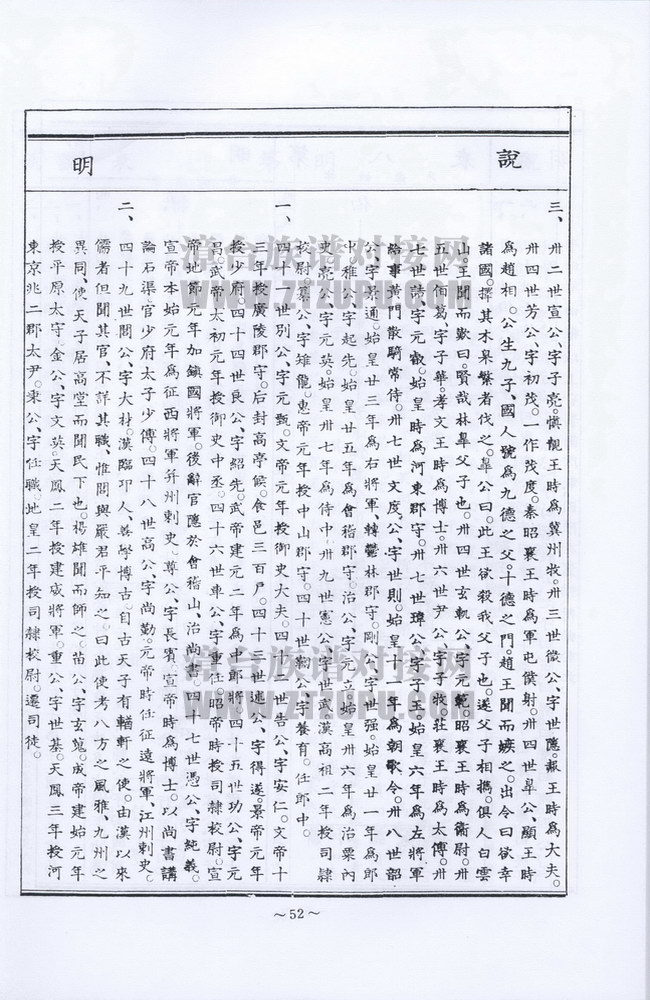 說明
三、卅二世宣公、字子亮。慎靚王時為冀州牧。卅三世徵公、字世隱。赧王時為大夫。
卅四世芳公、字初茂。一作茂度。秦昭襄王時為軍屯僕射。卅四世皋公、顯王時
為趙相。公生九子、國人號為九德之父。十德之門。趙王聞而嫉之。出令曰欲幸
諸國。擇其木杲繁者伐之。皋公曰。此王欲殺我父子也。遂父子相攜。俱入白雲
山。王聞而歎曰。賢哉林皋父子也。卅四世玄軏公、字元輗。昭襄王時為衞尉。卅
五世伯葛、字子華。孝文王時為博士。卅六世尹公、字子牧。莊襄王時為太傅。卅
七世請、字元叡。始皇時為河東郡守。卅七世瑋公、字子玉。始皇六年為左將軍
給事黃門散騎常侍。卅七世文度公、字世則。始皇十一年為朝歌令。卅八世韶
公、字景通。始皇廿三年為右將軍、轉鬱林郡守。剛公、字世强。始皇廿一年為郎
中。稚公、字起先。始皇廿五年為會稽郡守。治公、字元立。始皇卅六年為治粟內
史。亮公、字元英。始皇卅七年為侍中。卅九世憲公、字世武。漢高祖二年授司隸
校尉。冀公、字雉龍。惠帝元年授中山郡守。四十世鞠公、字養育。任郎中。
一、四十一世別公、字元甄。文帝元年授御史大夫。四十二世告公、字安仁。文帝十
三年授廣陵郡守。后封高亭候。食邑三百戶。四十三世進公、字得遂。景帝元年
授少府。四十四世良公、字紹先。武帝建元二年為中郎將。四十五世功公、字元
昌。武帝太初元年授御史中丞。四十六世車公、字重任。昭帝時授司隸校尉。宣
帝地節元年加鎮國將軍。後辭官隱於會稽山、治尚書。四十七世憑公、字純義。
宣帝本始元年為征西將軍并州刺史。尊公、字長賓。宣帝時為博士。以尚書講
論石渠。官少府太子少傅。四十八世高公、字尚勤。元帝時任征遠將軍、江州刺史。
二、四十九世閭公、字大材。漢臨邛人、善學博古。自古天子有輶軒之使。由漢以來
儒者但聞其官、不詳其職、惟閭與嚴君平知之。曰此使考八方之風雅、九州之
異同、使天子居高堂而聞民下也。楊雄聞而師之。苗公、字玄苋。成帝建始元年
授平原太守。金公、字文英。天鳳二年授建威將軍。重公、字世基。天鳳三年授河
東京兆二郡太尹。秉公、字任職。地皇二年授司隸校尉。遷司徒。
漳台族谱对接网
WWW.ZTZUPU.COM
漳台族谱对接网
WWW.ZTZUPU.COM
~52~